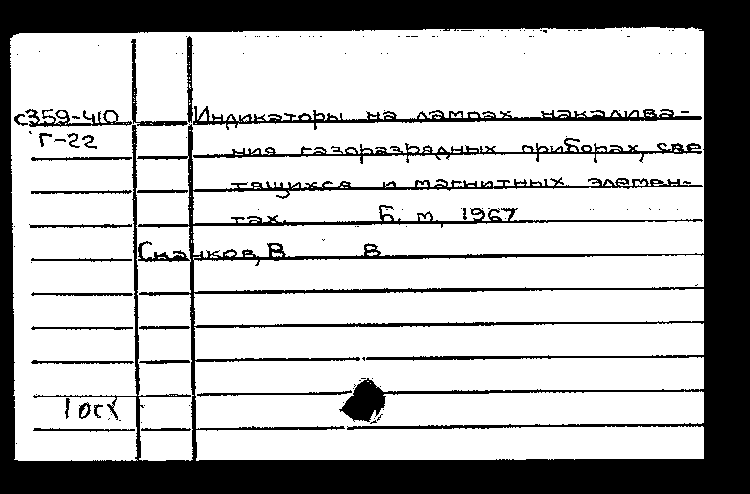 с359-410 Индикаторы на лампах накалива-
Г-22
ния газоразрядных приборах, све
тящихся и магнитных элемен-
тах. Б. м, 1967
В В